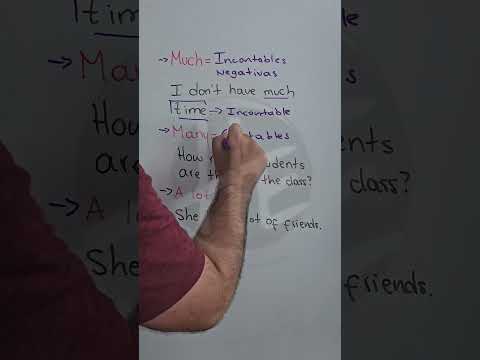 → Much = Incontables
Negativas
I don't have much
time → Incontable
→ Many =
How
are the class?
→ A lot
She lot of friends.